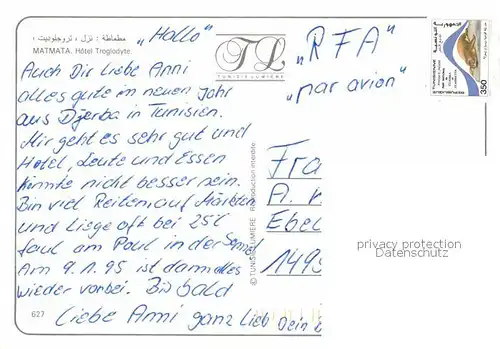 مطماطة : نزل ، تروجلوديت ،
MATMATA. Hôtel Troglodyte.
„Hallo"
TL
TUNISIE LUMIERE
„RFA"
„par avion"
350
Auch Dir Liebe Anni
alles gute im neuen Jahr
aus Djerba in Tunisien.
Mir geht es sehr gut und
Hotel, Leute und Essen
könnte nicht besser sein.
Bin viel Reiten auf Märkten
und Liege oft bei 25°C
faul am Poul in der Sonne!
Am 9.1.95 ist dann alles
wieder vorbei. Bis bald
Liebe Anni ganz Lieb Dein
Fra
A.
Ebel
1495
© TUNISIE LUMIERE Reproduction interdite
627
privacy protection
Datenschutz